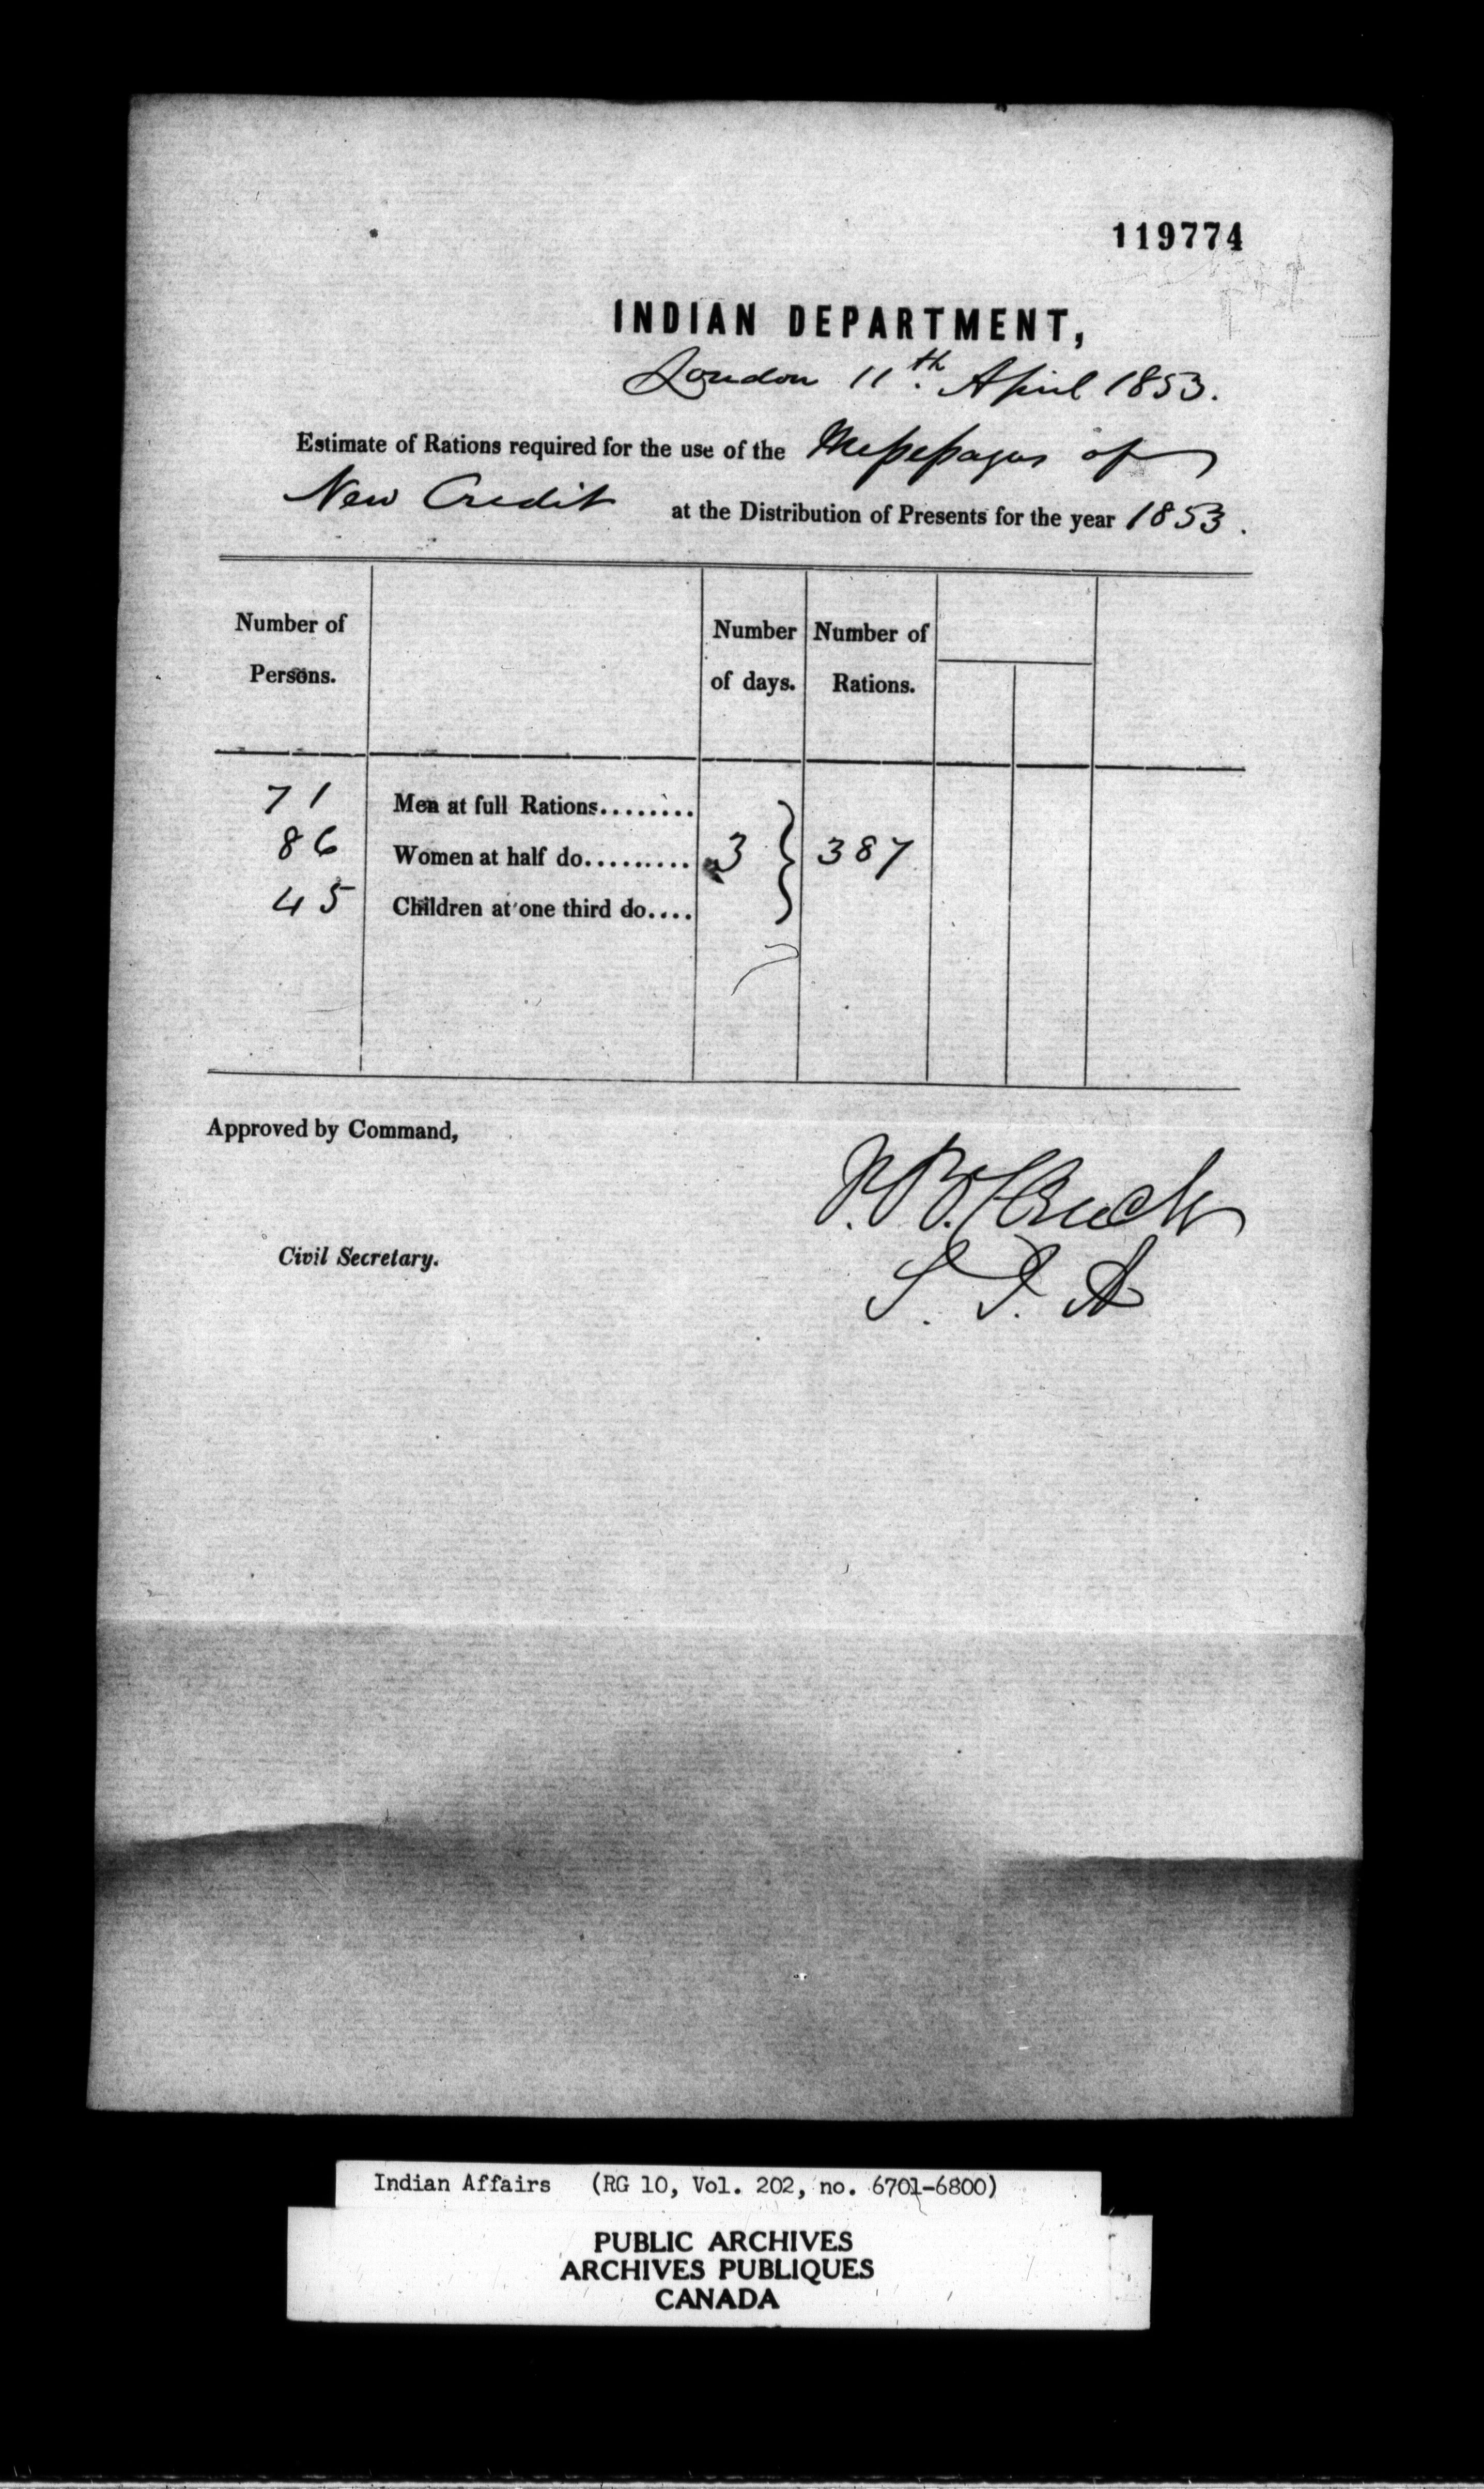 119774
INDIAN DEPARTMENT,
London 11th April 1853.
Estimate of Rations required for the use of the Messessagas of
New Credit at the Distribution of Presents for the year 1853.
Number of Persons.
Number of days.
Number of Rations.
71 Men at full Rations........
86 Women at half do......... 3 } 387
45 Children at one third do....
Approved by Command,
Civil Secretary.
S. I. A
Indian Affairs (RG 10, Vol. 202, no. 6701-6800)
PUBLIC ARCHIVES
ARCHIVES PUBLIQUES
CANADA